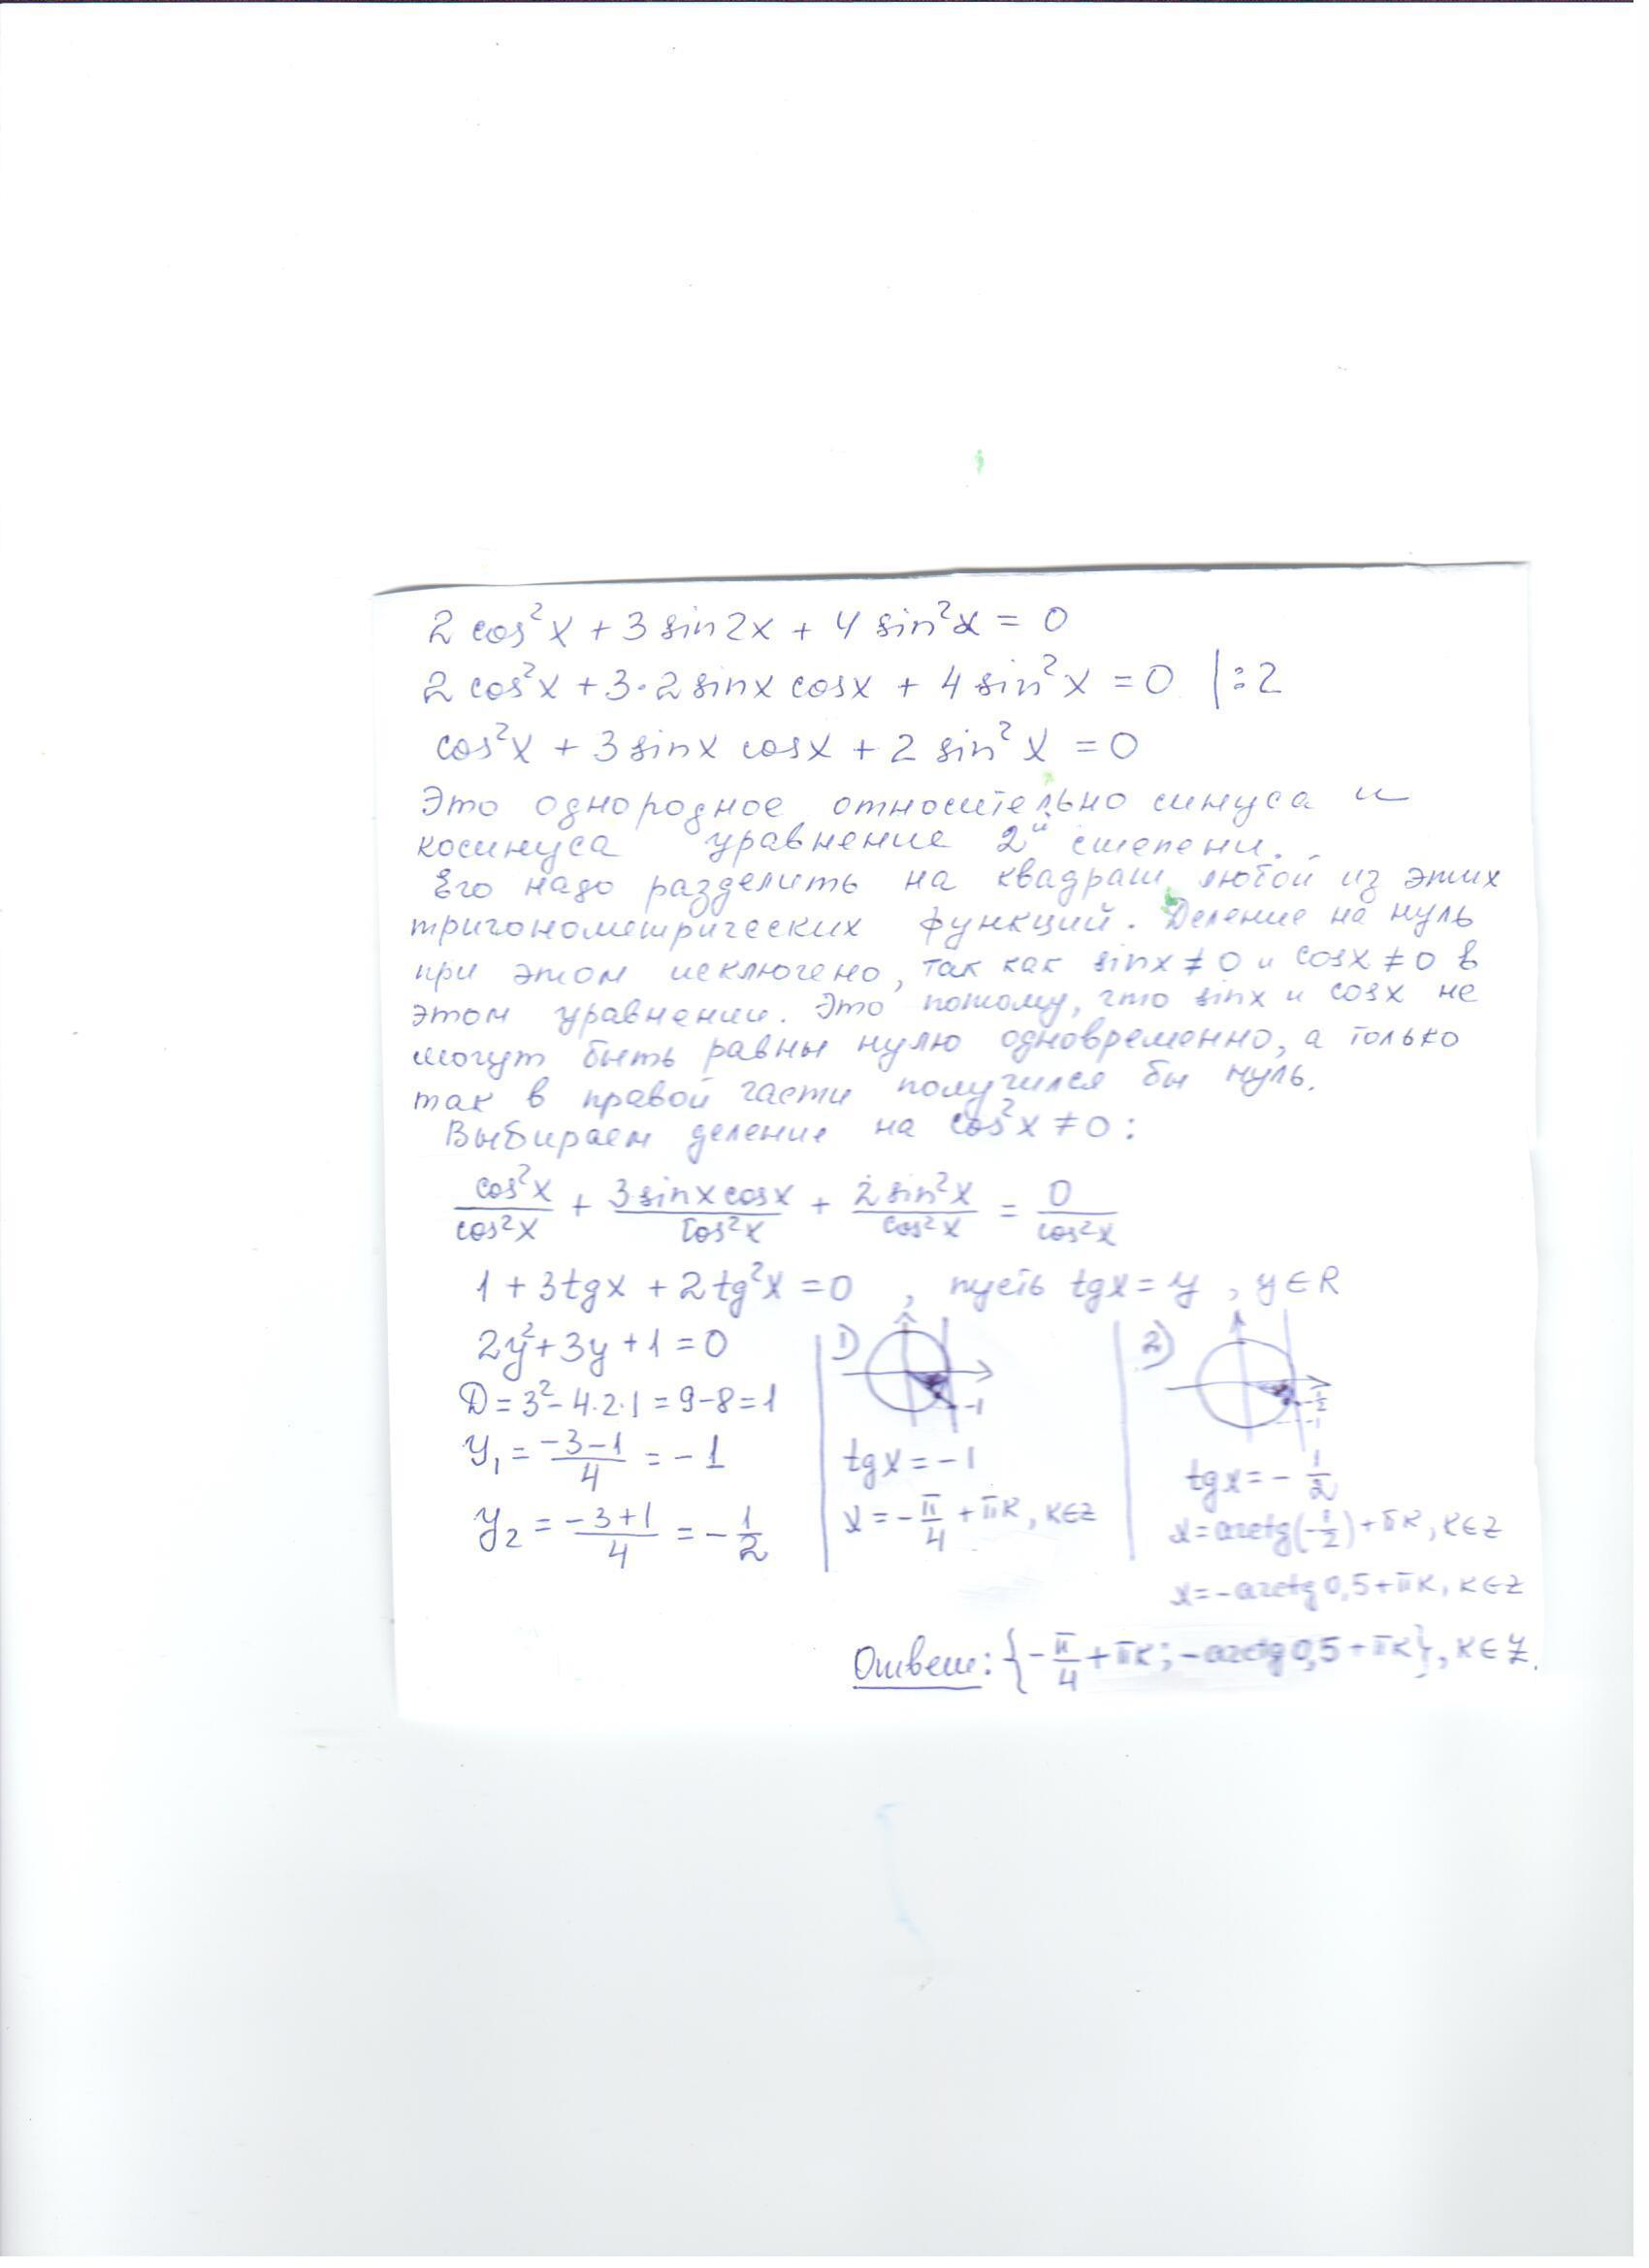 2 cos²x + 3 sin2x + 4 sin²x = 0
2 cos²x + 3·2 sinx cosx + 4 sin²x = 0 |:2
cos²x + 3 sinx cosx + 2 sin²x = 0
Это однородное относительно синуса и
косинуса уравнение 2й степени.
Его надо разделить на квадрат любой из этих
тригонометрических функций. Деление на нуль
при этом исключено, так как sinx ≠ 0 и cosx ≠ 0 в
этом уравнении. Это потому, что sinx и cosx не
могут быть равны нулю одновременно, а только
так в правой части получился бы нуль.
Выбираем деление на cos²x ≠ 0:
cos²x/cos²x + 3 sinx cosx/cos²x + 2 sin²x/cos²x = 0/cos²x
1 + 3tgx + 2tg²x = 0 , пусть tgx = y , y∈R
2y² + 3y + 1 = 0
D = 3² - 4·2·1 = 9-8 = 1
y₁ = (-3-1)/4 = -1
y₂ = (-3+1)/4 = -1/2
1)
-1
tgx = -1
x = -π/4 + πk, k∈Z
2)
-1/2
-1
tgx = -1/2
x = arctg(-1/2) + πk, k∈Z
x = -arctg 0,5 + πk, k∈Z
Ответ: {-π/4 + πk; -arctg 0,5 + πk}, k∈Z.